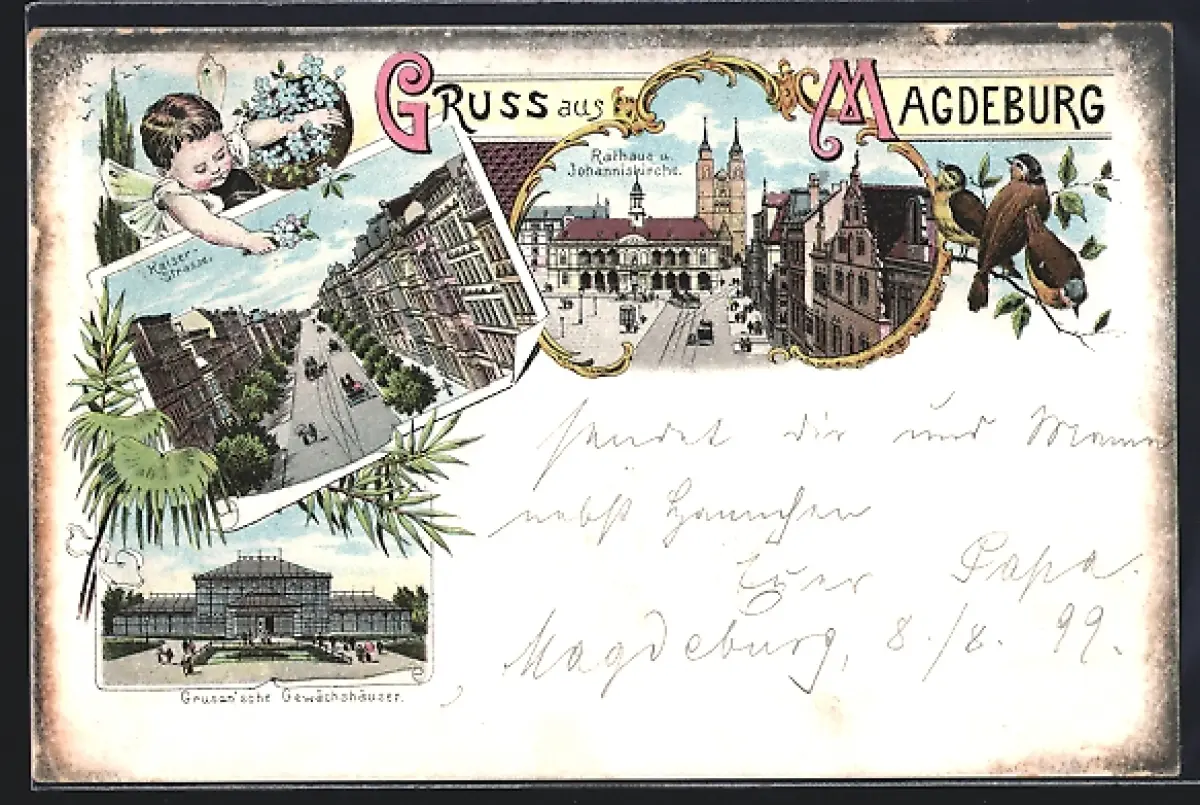 GRUSS aus MAGDEBURG
Rathaus u.
Johanniskirche.
Kaiser-
strasse.
sendet dir und Mama
nebst Hannchen
Euer Papa.
Magdeburg, 8./8. 99.
Gruson'sche Gewächshäuser.